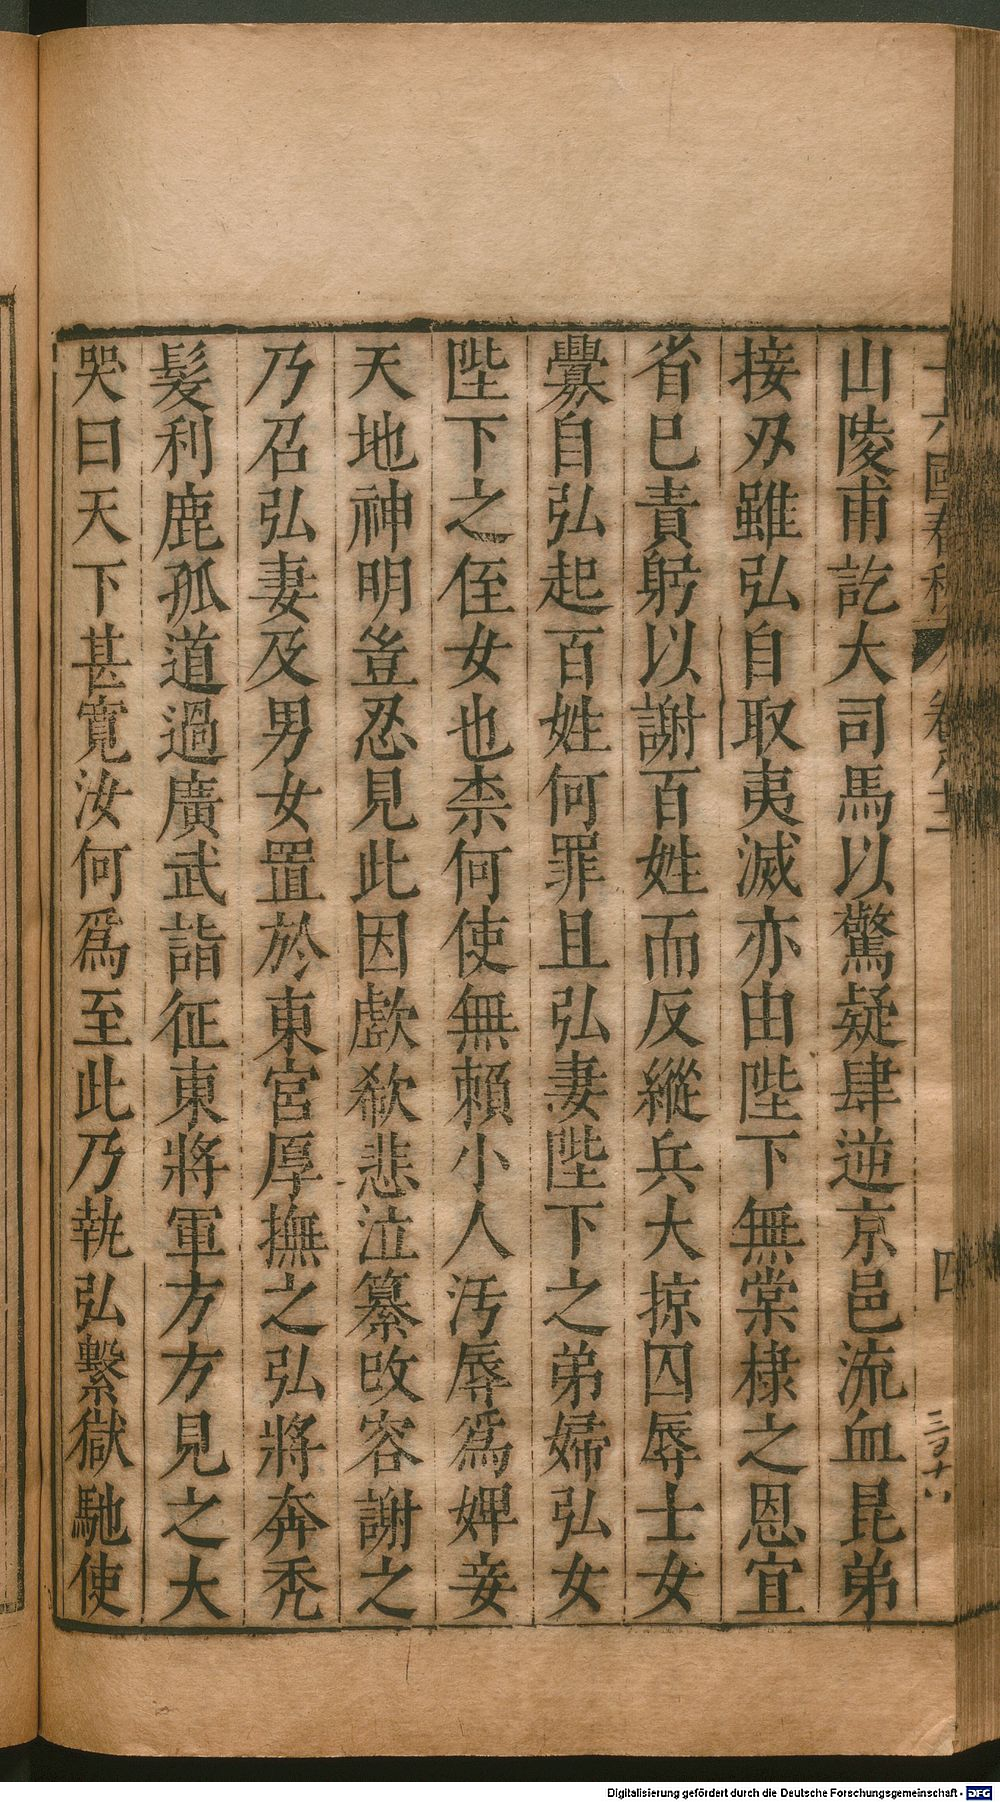 山陵甫訖大司馬以驚疑肆逆京邑流血昆弟
接刃雖弘自取夷滅亦由陛下無棠棣之恩宜
省已責躬以謝百姓而反縱兵大掠囚辱士女
釁自弘起百姓何罪且弘妻陛下之弟婦弘女
陛下之侄女也柰何使無賴小人汚辱爲婢妾
天地神明豈忍見此因歔欷悲泣纂改容謝之
乃召弘妻及男女置於東宮厚撫之弘將奔禿
髮利鹿孤道過廣武詣征東將軍方方見之大
哭曰天下甚寬汝何爲至此乃執弘繫獄馳使
國春秋
四
Digitalisierung gefördert durch die Deutsche Forschungsgemeinschaft - DFG